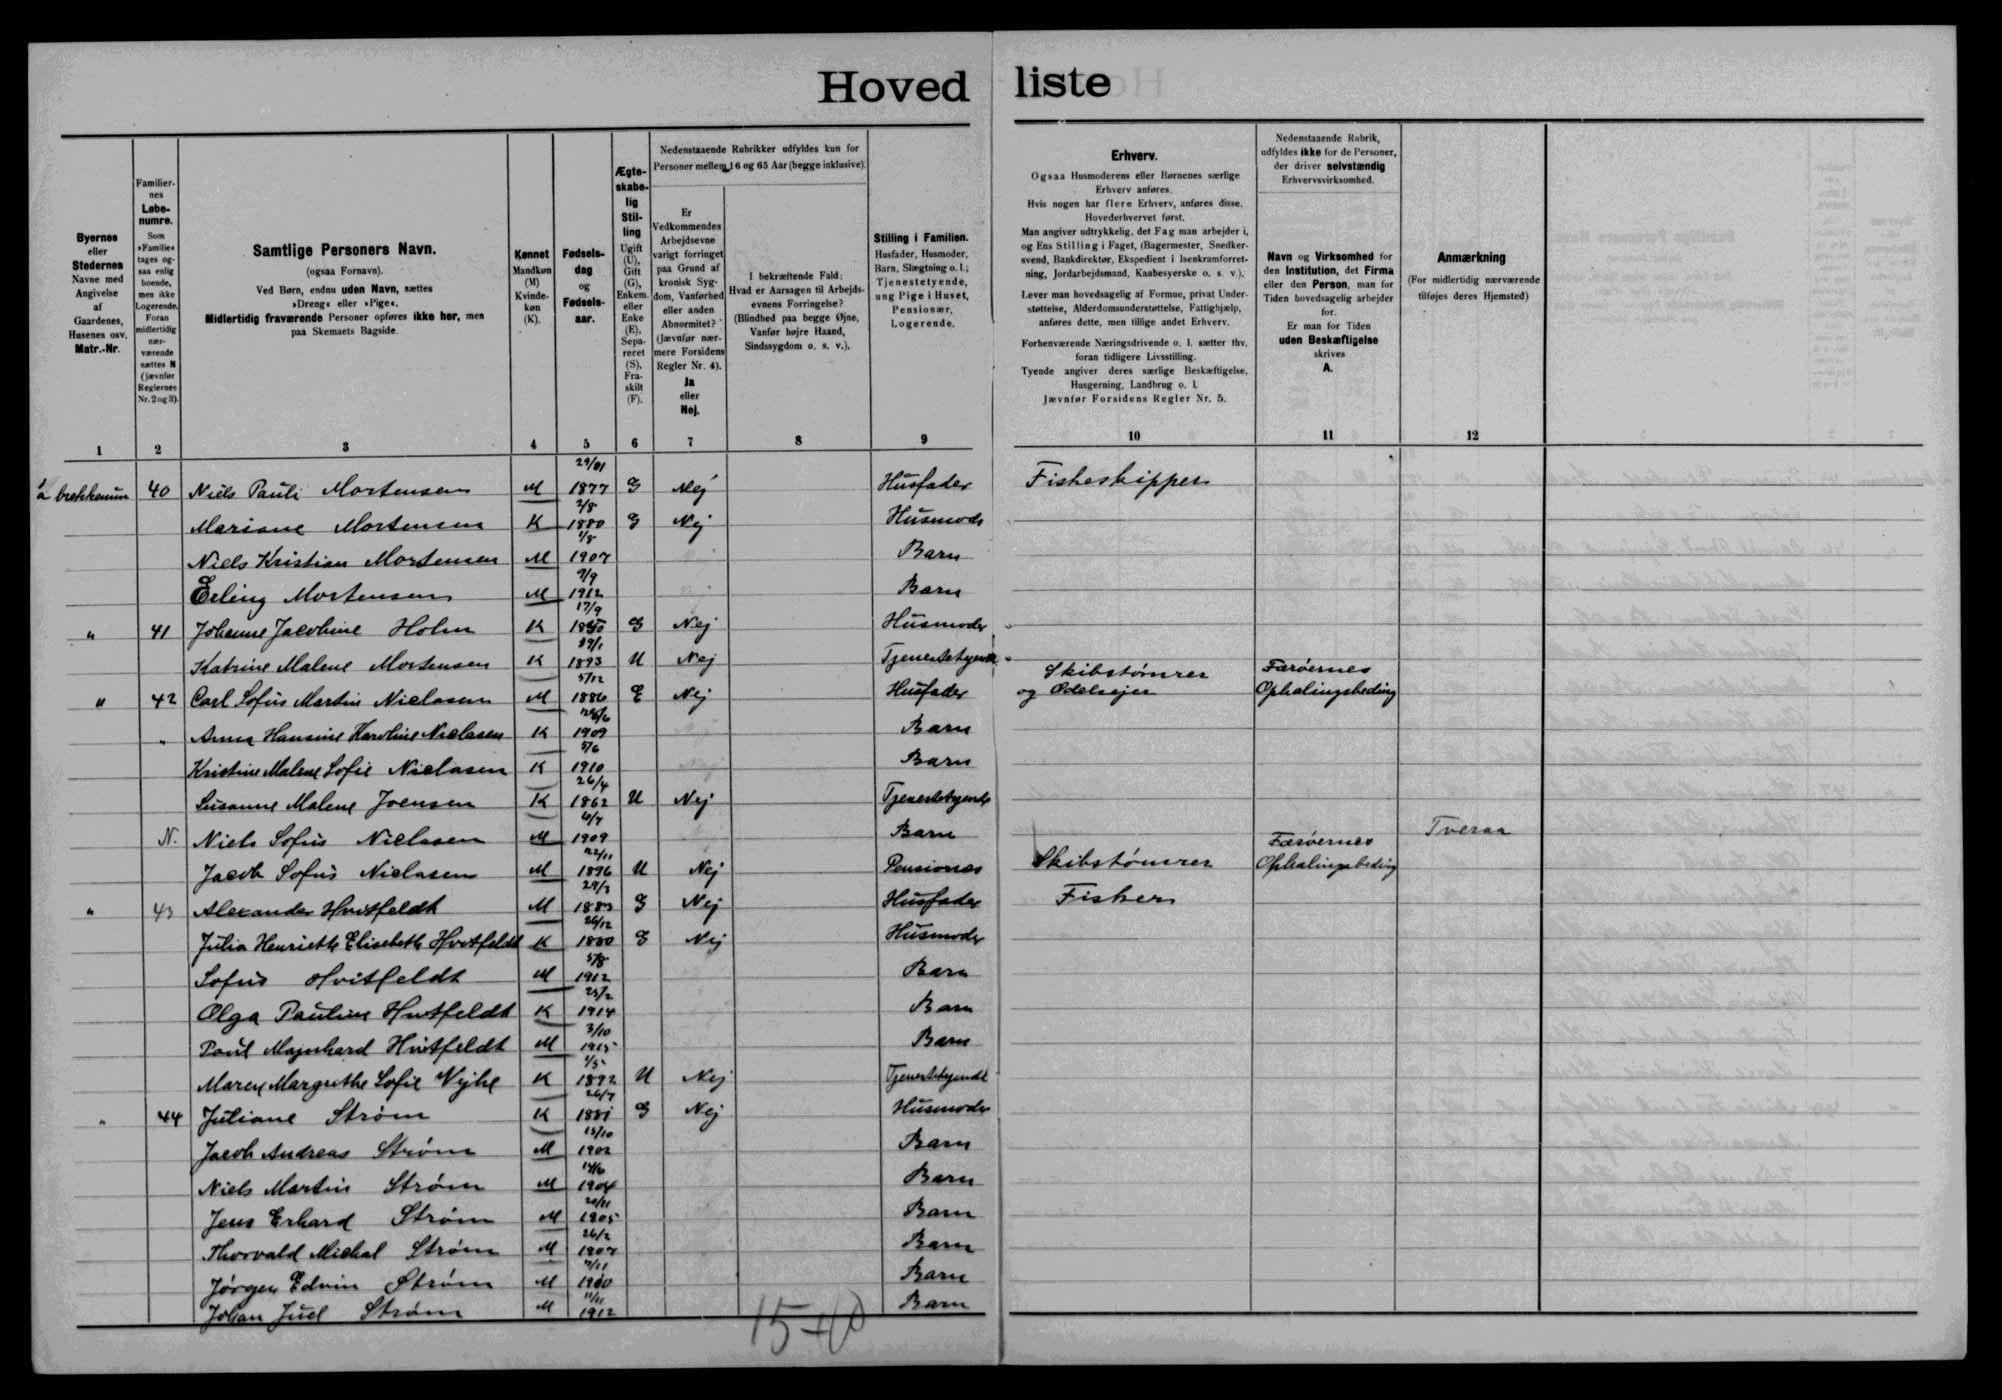 Hoved liste
Byernes eller Stedernes Navne med Angivelse af Gaardenes, Husenes osv. Matr.-Nr.
Familiernes Løbenumre. Som »Familie« tages ogsaa enlig boende, men ikke Logerende. Foran midlertidig nærværende sættes N (jævnfør Reglernes Nr. 2 og 3).
Samtlige Personers Navn.
(ogsaa Fornavn).
Ved Børn, endnu uden Navn, sættes
»Dreng« eller »Pige«.
Midlertidig fraværende Personer opføres ikke her, men
paa Skemaets Bagside.
Kønnet Mandkøn (M) Kvindekøn (K).
Fødselsdag og Fødselsaar.
Ægteskabelig Stilling Ugift (U), Gift (G), Enkem. eller Enke (E), Separeret (S), Fraskilt (F).
Nedenstaaende Rubrikker udfyldes kun for
Personer mellem 16 og 65 Aar (begge inklusive).
Er Vedkommendes Arbejdsevne varigt forringet paa Grund af kronisk Sygdom, Vanførhed eller anden Abnormitet? (Jævnfør nærmere Forsidens Regler Nr. 4). Ja eller Nej.
I bekræftende Fald: Hvad er Aarsagen til Arbejdsevnens Forringelse? (Blindhed paa begge Øjne, Vanfør højre Haand, Sindssygdom o. s. v.).
Stilling i Familien. Husfader, Husmoder, Barn, Slægtning o. l.; Tjenestetyende, ung Pige i Huset, Pensionær, Logerende.
Erhverv.
Ogsaa Husmoderens eller Børnenes særlige
Erhverv anføres.
Hvis nogen har flere Erhverv, anføres disse.
Hovederhvervet først.
Man angiver udtrykkelig, det Fag man arbejder i,
og Ens Stilling i Faget, (Bagermester, Snedkersvend, Bankdirektør, Ekspedient i Isenkramforretning, Jordarbejdsmand, Kaabesyerske o. s. v.).
Lever man hovedsagelig af Formue, privat Understøttelse, Alderdomsunderstøttelse, Fattighjælp,
anføres dette, men tillige andet Erhverv.
Forhenværende Næringsdrivende o. l. sætter thv.
foran tidligere Livsstilling.
Tyende angiver deres særlige Beskæftigelse,
Husgerning, Landbrug o. l.
Jævnfør Forsidens Regler Nr. 5.
Nedenstaaende Rubrik,
udfyldes ikke for de Personer,
der driver selvstændig
Erhvervsvirksomhed.
Navn og Virksomhed for
den Institution, det Firma
eller den Person, man for
Tiden hovedsagelig arbejder
for.
Er man for Tiden
uden Beskæftigelse
skrives
A.
Anmærkning
(For midlertidig nærværende
tilføjes deres Hjemsted)
1 2 3 4 5 6 7 8 9 10 11 12
40 Niels Pauli Mortensen M 29/01 1877 G Nej Husfader Fiskeskipper
Mariane Mortensen K 2/8 1880 G Nej Husmoder
Niels Kristian Mortensen M 1/8 1907 Barn
Erling Mortensen M 9/9 1912 Barn
" 41 Johanne Jacobine Holm K 17/9 G Nej Husmoder
Katrine Malene Mortensen K 1893 U Nej Tjenestetyende
" 42 Carl Sofus Martin Niclasen M 5/12 1886 E Nej Husfader Skibstømrer og Odelsejer Færøernes Ophalingsbeding
Anna Hansine Karoline Niclasen K 1909 Barn
Kristine Malene Sofie Niclasen K 5/6 1910 Barn
Susanne Malene Joensen K 26/4 1862 U Nej Tjenestetyende
N. Niels Sofus Niclasen M 1909 Barn Tveraa
Jacob Sofus Niclasen M 22/11 1896 U Nej Pensionær Skibstømrer Færøernes Ophalingsbeding
" 43 Alexander Hvitfeldt M 1883 G Nej Husfader Fisker
Julia Henriette Elisebeth Hvitfeldt K 26/12 1880 G Nej Husmoder
Sofus Hvitfeldt M 5/8 1912 Barn
Olga Pauline Hvitfeldt K 25/2 1914 Barn
Poul Majnhard Hvitfeldt M 3/10 1915 Barn
Maren Margrethe Sofie Vejhe K 1/5 1892 U Nej Tjenestetyende
" 44 Juliane Strøm K 26/7 1881 G Nej Husmoder
Jacob Andreas Strøm M 15/10 1902 Barn
Niels Martin Strøm M 14/6 1904 Barn
Jens Erhard Strøm M 20/11 1905 Barn
Thorvald Michal Strøm M 26/2 1907 Barn
Jørgen Edvin Strøm M 7/11 1910 Barn
Johan Juel Strøm M 11/11 1912 Barn